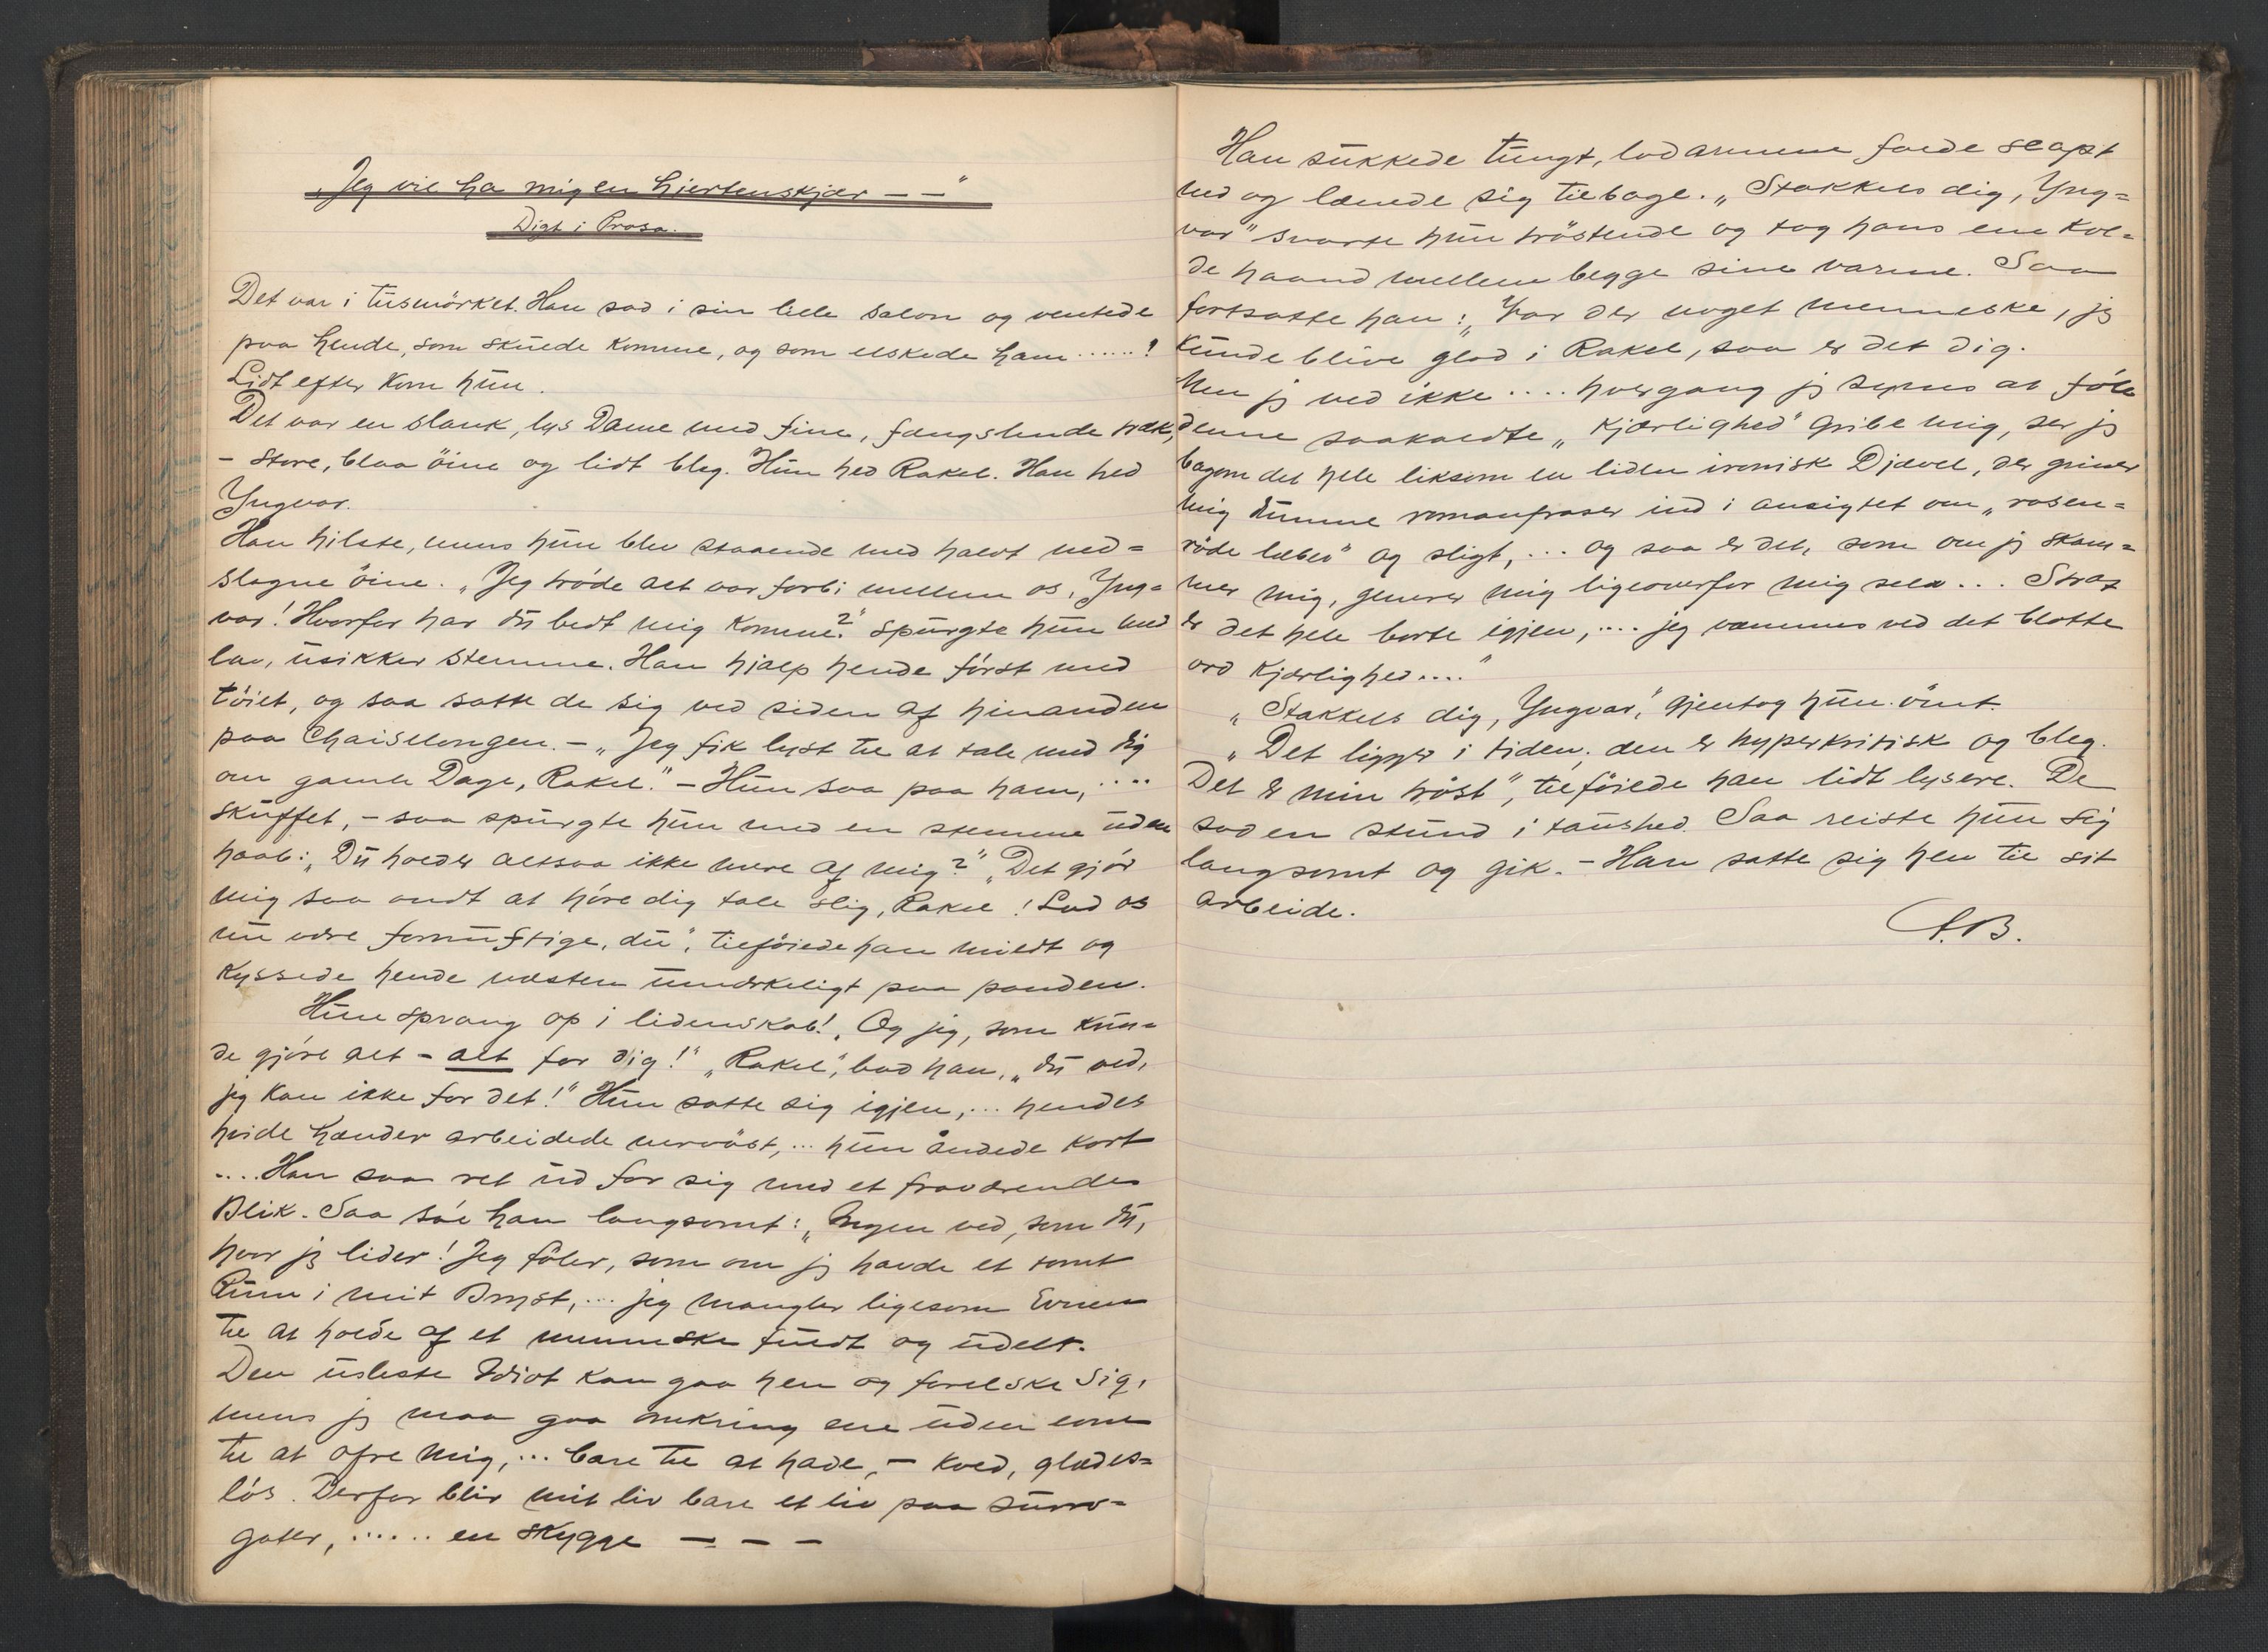 „Jeg vil ha mig en hjertenskjær – –"
Digt i Prosa.
Det var i tusmörket. Han sad i sin lille salon og ventede
paa hende, som skulde komme, og som elskede ham ......!
Lidt efter kom hun.
Det var en slank, lys Dame med fine, fængslende træk,
– store, blaa öine og lidt bleg. Hun hed Rakel. Han hed
Yngvar.
Han hilste, mens hun blev staaende med halvt ned=
slagne öine. „Jeg tróde alt var forbi mellem os, Yng=
var! Hvorfor har du bedt mig komme?" spurgte hun med
lav, usikker stemme. Han hjalp hende fórst med
töiet, og saa satte de sig ved siden af hinanden
paa Chaiselongen. – „Jeg fik lyst til at tale med dig
om gamle Dage, Rakel." – Hun saa paa ham, ....
skuffet, – saa spurgte hun med en stemme uden
haab: „Du holder altsaa ikke mere af mig?" „Det gjór
mig saa ondt at hóre dig tale slig, Rakel! Lad os
nu være fornuftige, du", tilföiede han mildt og
kyssede hende næsten umærkeligt paa panden.
Hun sprang op i lidenskab! „Og jeg, som kun=
de gjóre alt – alt for dig!" „Rakel", bad han, „du ved,
jeg kan ikke for det!" Hun satte sig igjen, ... hendes
hvide hænder arbeidede nervöst, ... hun åndede kort
.... Han saa ret ud for sig med et fraværende
Blik. Saa sa'e han langsomt: „Ingen ved, som du,
hvor jeg lider! Jeg föler, som om jeg havde et tomt
Rum i mit Bryst, ... jeg mangler ligesom Evnen
til at holde af et menneske fuldt og udelt.
Den usleste Idiot kan gaa hen og forelske sig,
mens jeg maa gaa omkring ene uden evne
til at ofre mig, ... bare til at hade, – kold, glædes=
lós. Derfor blir mit liv bare et liv paa surro=
gater, ...... en skygge – – –
Han sukkede tungt, lod armene falde slapt
ned og lænede sig tilbage. „Stakkels dig, Yng=
var" svarte hun tröstende og tog hans ene kol=
de haand mellem begge sine varme. Saa
fortsatte han: „Var der noget menneske, jeg
kunde blive glad i Rakel, saa er det dig.
Men jeg ved ikke .... hvergang jeg synes at fóle
denne saakaldte „Kjærlighed" gribe mig, ser jeg
bagom det hele liksom en liden ironisk Djævel, der griner
mig dumme romanfraser ind i ansigtet om „rosen=
röde læber" og sligt, ... og saa er det, som om jeg skam=
mer mig, generer mig ligeoverfor mig selv ... Strax
er det hele borte igjen, .... jeg væmmes ved det blotte
ord Kjærlighed...."
„Stakkels dig, Yngvar," gjentog hun ömt.
„Det ligger i tiden; den er hyperkritisk og bleg.
Det er min tröst", tilföiede han lidt lysere. De
sad en stund i taushed. Saa reiste hun sig
langsomt og gik. – Han satte sig hen til sit
arbeide.